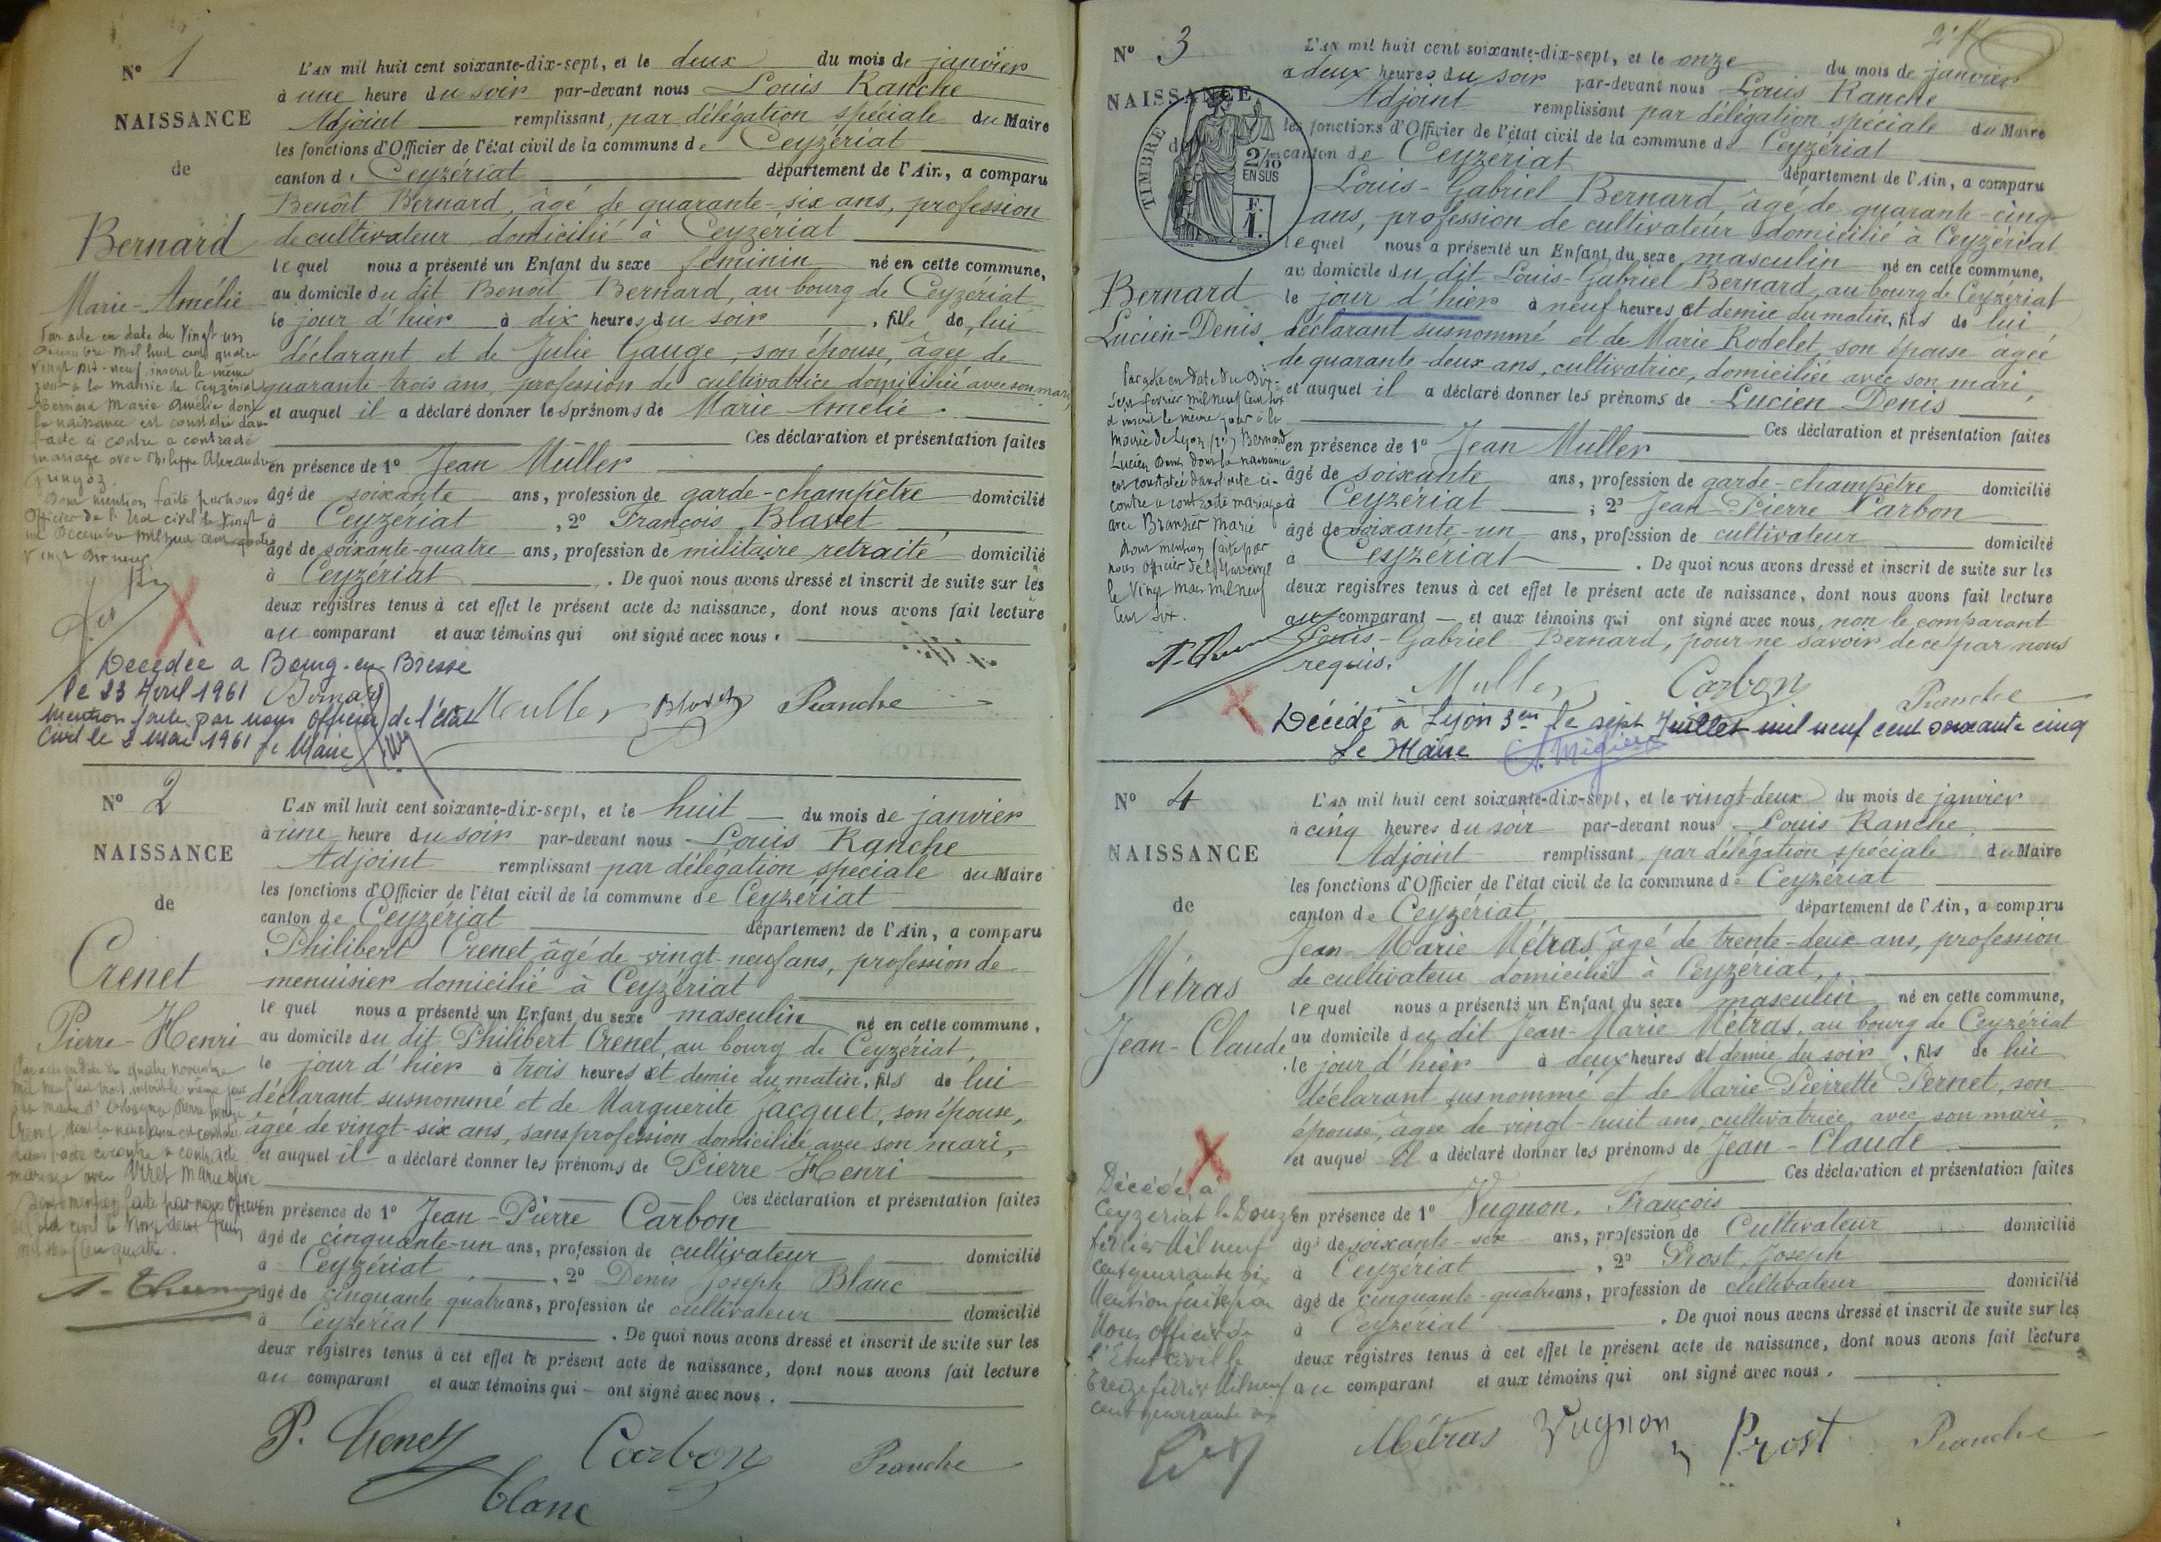 N° 1
NAISSANCE
de
Bernard
Marie-Amélie
Par acte en date du vingt un
décembre mil huit cent quatre
vingt dix-neuf, inscrit le même
jour à la mairie de Ceyzériat
Bernard Marie Amélie dont
la naissance est constatée dans
l'acte ci contre a contracté
mariage avec Philippe Alexandre
Dont mention faite par nous
Officier de l'état civil le vingt
un Décembre mil huit cent quatre
vingt dix neuf
L'AN mil huit cent soixante-dix-sept, et le deux du mois de janvier
à une heure du soir par-devant nous Louis Ranche
Adjoint remplissant, par délégation spéciale du Maire
les fonctions d'Officier de l'état civil de la commune de Ceyzériat
canton de Ceyzériat département de l'Ain, a comparu
Benoît Bernard, âgé de quarante-six ans, profession
de cultivateur domicilié à Ceyzériat
lequel nous a présenté un Enfant du sexe féminin né en cette commune,
au domicile du dit Benoît Bernard, au bourg de Ceyzériat
le jour d'hier à dix heures du soir, fille de lui
déclarant et de Julie Gauge, son épouse, âgée de
quarante-trois ans, profession de cultivatrice domiciliée avec son mari
et auquel il a déclaré donner les prénoms de Marie Amélie.
Ces déclaration et présentation faites
en présence de 1° Jean Müller
âgé de soixante ans, profession de garde-champêtre domicilié
à Ceyzériat, 2° François Blavet
âgé de soixante-quatre ans, profession de militaire retraité domicilié
à Ceyzériat. De quoi nous avons dressé et inscrit de suite sur les
deux registres tenus à cet effet le présent acte de naissance, dont nous avons fait lecture
au comparant et aux témoins qui ont signé avec nous.
Décédée à Bourg-en-Bresse
le 23 Avril 1961 Bernard
Mention faite par nous officier de l'état
Civil le 2 Mai 1961 Le Maire
Muller Blavet Ranche
N° 2
NAISSANCE
de
Crenet
Pierre-Henri
Par acte en date du quatre novembre
mil neuf cent trois, inscrit le même jour
à la mairie d' Pierre Henri
Crenet, dont la naissance est constatée
dans l'acte ci contre a contracté
mariage avec Viret Marie
Dont mention faite par nous Officier
de l'état civil le vingt deux juin
mil neuf cent quatre.
L'AN mil huit cent soixante-dix-sept, et le huit du mois de janvier
à une heure du soir par-devant nous Louis Ranche
Adjoint remplissant par délégation spéciale du Maire
les fonctions d'Officier de l'état civil de la commune de Ceyzériat
canton de Ceyzériat département de l'Ain, a comparu
Philibert Crenet, âgé de vingt-neuf ans, profession de
menuisier domicilié à Ceyzériat
lequel nous a présenté un Enfant du sexe masculin né en cette commune,
au domicile du dit Philibert Crenet, au bourg de Ceyzériat,
le jour d'hier à trois heures et demie du matin, fils de lui
déclarant susnommé et de Marguerite Jacquet, son épouse,
âgée de vingt-six ans, sans profession domiciliée avec son mari,
et auquel il a déclaré donner les prénoms de Pierre Henri
Ces déclaration et présentation faites
en présence de 1° Jean-Pierre Carbon
âgé de cinquante-un ans, profession de cultivateur domicilié
à Ceyzériat, 2° Denis Joseph Blanc
âgé de cinquante quatre ans, profession de cultivateur domicilié
à Ceyzériat. De quoi nous avons dressé et inscrit de suite sur les
deux registres tenus à cet effet le présent acte de naissance, dont nous avons fait lecture
au comparant et aux témoins qui – ont signé avec nous.
P. Crenet Carbon Ranche
Blanc
N° 3
NAISSANCE
de
TIMBRE
2/10
EN SUS
F.
1.
Bernard
Lucien-Denis.
Par acte en date du dix-
sept février mil neuf cent six
inscrit le même jour à la
mairie de Lyon Bernard
Lucien Denis dont la naissance
est constatée dans l'acte ci-
contre a contracté mariage
avec Bransier Marie
Dont mention faite par
nous Officier de l'état civil
le vingt mars mil neuf
cent six.
L'AN mil huit cent soixante-dix-sept, et le onze du mois de janvier
à deux heures du soir par-devant nous Louis Ranche
Adjoint remplissant par délégation spéciale du Maire
les fonctions d'Officier de l'état civil de la commune de Ceyzériat
canton de Ceyzériat département de l'Ain, a comparu
Louis-Gabriel Bernard, âgé de quarante-cinq
ans, profession de cultivateur domicilié à Ceyzériat
lequel nous a présenté un Enfant du sexe masculin né en cette commune,
au domicile du dit Louis-Gabriel Bernard, au bourg de Ceyzériat
le jour d'hier à neuf heures et demie du matin, fils de lui
déclarant susnommé et de Marie Rodelet, son épouse âgée
de quarante-deux ans, cultivatrice, domiciliée avec son mari,
et auquel il a déclaré donner les prénoms de Lucien Denis
Ces déclaration et présentation faites
en présence de 1° Jean Müller
âgé de soixante ans, profession de garde-champêtre domicilié
à Ceyzériat; 2° Jean-Pierre Carbon
âgé de soixante-un ans, profession de cultivateur domicilié
à Ceyzériat. De quoi nous avons dressé et inscrit de suite sur les
deux registres tenus à cet effet le présent acte de naissance, dont nous avons fait lecture
au comparant – et aux témoins qui ont signé avec nous, non le comparant
Louis-Gabriel Bernard, pour ne savoir de ce par nous
requis.
Muller Carbon Ranche
Décédé à Lyon 3em le sept Juillet mil neuf cent soixante cinq
Le Maire
N° 4
NAISSANCE
de
Métras
Jean-Claude
Décédé à
Ceyzeriat le Douze
février Mil neuf
cent quarante six
Mention faite par
Nous officier de
l'Etat civil le
treize février Mil neuf
cent quarante six
L'AN mil huit cent soixante-dix-sept, et le vingt-deux du mois de janvier
à cinq heures du soir par-devant nous Louis Ranche,
Adjoint remplissant, par délégation spéciale du Maire
les fonctions d'Officier de l'état civil de la commune de Ceyzériat
canton de Ceyzériat, département de l'Ain, a comparu
Jean-Marie Métras, âgé de trente-deux ans, profession
de cultivateur domicilié à Ceyzériat,
lequel nous a présenté un Enfant du sexe masculin né en cette commune,
au domicile du dit Jean-Marie Métras, au bourg de Ceyzériat
le jour d'hier à deux heures et demie du soir, fils de lui
déclarant susnommé et de Marie-Pierrette Pernet, son
épouse, âgée de vingt-huit ans, cultivatrice, avec son mari,
et auquel il a déclaré donner les prénoms de Jean-Claude
Ces déclaration et présentation faites
en présence de 1° Vugnon, François
âgé de soixante-six ans, profession de Cultivateur domicilié
à Ceyzériat, 2° Prost, Joseph
âgé de cinquante-quatre ans, profession de cultivateur domicilié
à Ceyzériat. De quoi nous avons dressé et inscrit de suite sur les
deux registres tenus à cet effet le présent acte de naissance, dont nous avons fait lecture
au comparant et aux témoins qui ont signé avec nous.
Métras Vugnon Prost Ranche